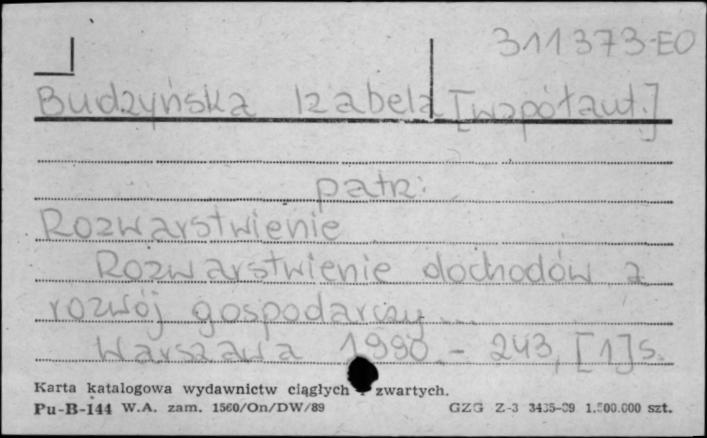 311373-EO
Budzyńska Izabela [współaut.]
patrz:
Rozwarstwienie
Rozwarstwienie dochodów a
rozwój gospodarczy...
Warszawa 1990 - 243, [1] s.
Karta katalogowa wydawnictw ciągłych i zwartych.
Pu-B-144 W.A. zam. 1560/On/DW/89 GZG Z-3 3435-89 1.500.000 szt.